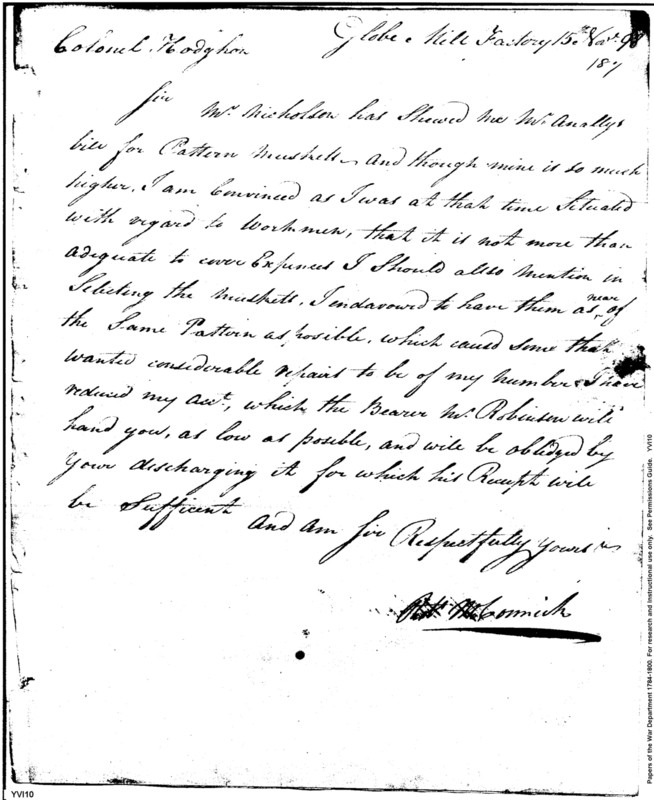 Globe Mill Factory 15th Novr. 98
187
Colonel Hodghon
Sir Mr. Nicholson has Shewed me Mr. Anallys
bill for Pattern Muskets, and though mine is so much
higher, I am Convinced as I was at that time Situated
with regard to workmen, that it is not more than
adequate to cover Expences I Should allso mention in
Selecting the muskets, I endavoured to have them as near of
the Same Pattern as posible, which causd some that
wanted considerable repairs to be of my number & I have
reduced my acct, which the Bearer Mr. Robinson will
hand you, as low as posible, and will be obledged by
your discharging it for which his Receipt will
be Sufficent and am Sir Respectfully yours
Robt. McCormick
YVI10
Papers of the War Department 1784-1800. For research and instructional use only. See Permissions Guide. YVI10